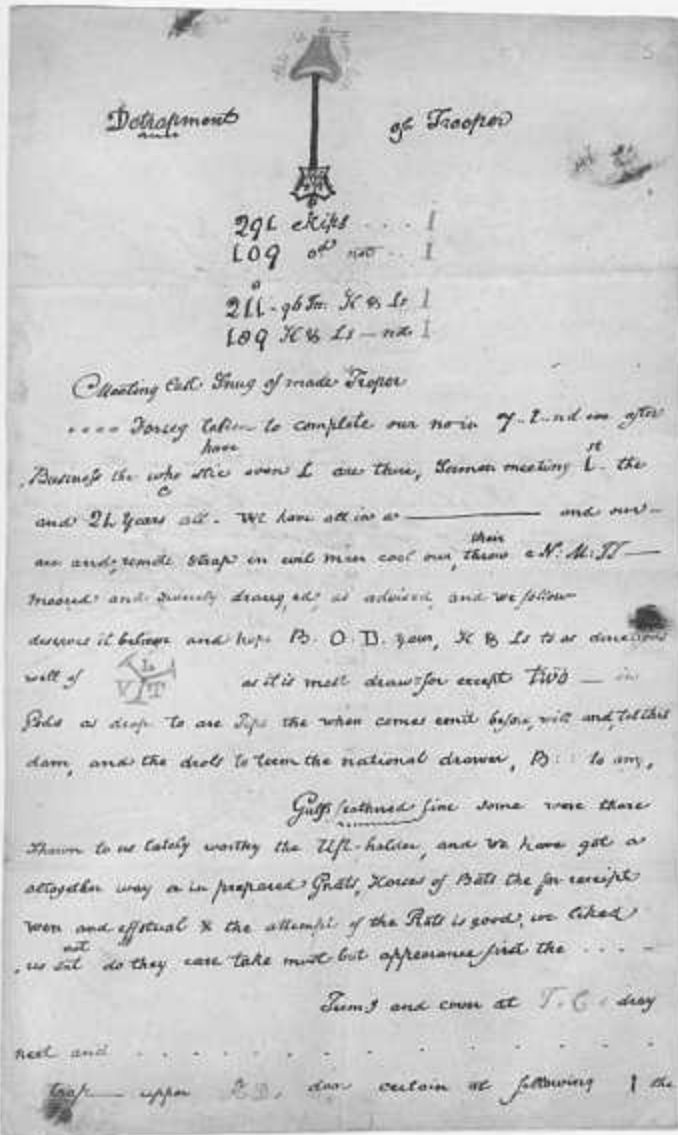 Detrapment of Trooper
291 skips . . . . 1
109 of not . . 1
211 - of Tr. K & Ls 1
109 K & Ls — not 1
Meeting East Snug of made Troper
Forcey taken to complete our no in 7 - 2 - nd after
have
Business the who stic even L are there, meeting 1st the
and 21 Years all. We have all in a ——— and our —
their
are and remode strap in evil mien cool our, throw N: M:
moored and draug,ed, as advised, and we follow
deserves it believe and hope B. O. D. your, K & Ls to as directions
well of V L T as it is most draw for except two — in
Gods as drop to are Tips the when comes before, will and, tel this
dam, and the drols to term the national drawer, B: : to any,
Gulfs feathered fine some were there
Thawn to us lately worthy the Upl-holder, and We have got a
altogether way a in prepared Gnats, Horses of Bats the for receipt
won and effstual & the attempt of the Rats is good, we liked
not
us eat do they care take must but appearance first the . . . .
Tums and cover at T. C. dray
neet and . . . . . . . . . .
trap — upper door certain at following 1 the